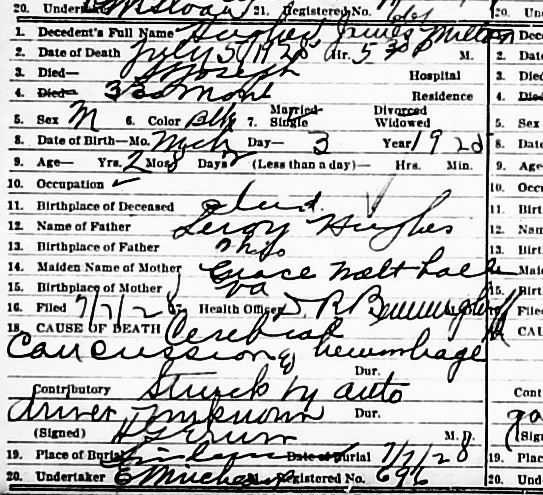 20. Undertaker 21. Registered No. 20. Un
1. Decedent's Full Name Hughes, James Milton Dece
2. Date of Death July 5, 1928 Hr. 5 30 P M. 2. Date
3. Died— St Joseph Hospital 3. Died
4. Died— 33 Mont Residence 4. Died
5. Sex M 6. Color Blk 7. Married Single Divorced Widowed 5. Sex
8. Date of Birth—Mo. Mch Day— 3 Year 1928 8. Date
9. Age— Yrs. 2 Mos. Days 2 (Less than a day)— Hrs. Min. 9. Age
10. Occupation ✓ 10. Occu
11. Birthplace of Deceased 11. Birt
12. Name of Father Leroy Hughes 12. Nam
13. Birthplace of Father Ohio 13. Birt
14. Maiden Name of Mother Grace Maid
15. Birthplace of Mother Va 15. Birt
16. Filed 7/7/28 17. Health Officer R File
18. CAUSE OF DEATH Cerebral CAU
Concussion & hemorrhage
Dur.
Contributory Struck by auto Cont
driver unknown Dur.
(Signed) M. D. (Sign
19. Place of Burial Date of Burial 7/7/28 19. Place
20. Undertaker Registered No. 696 20. Und